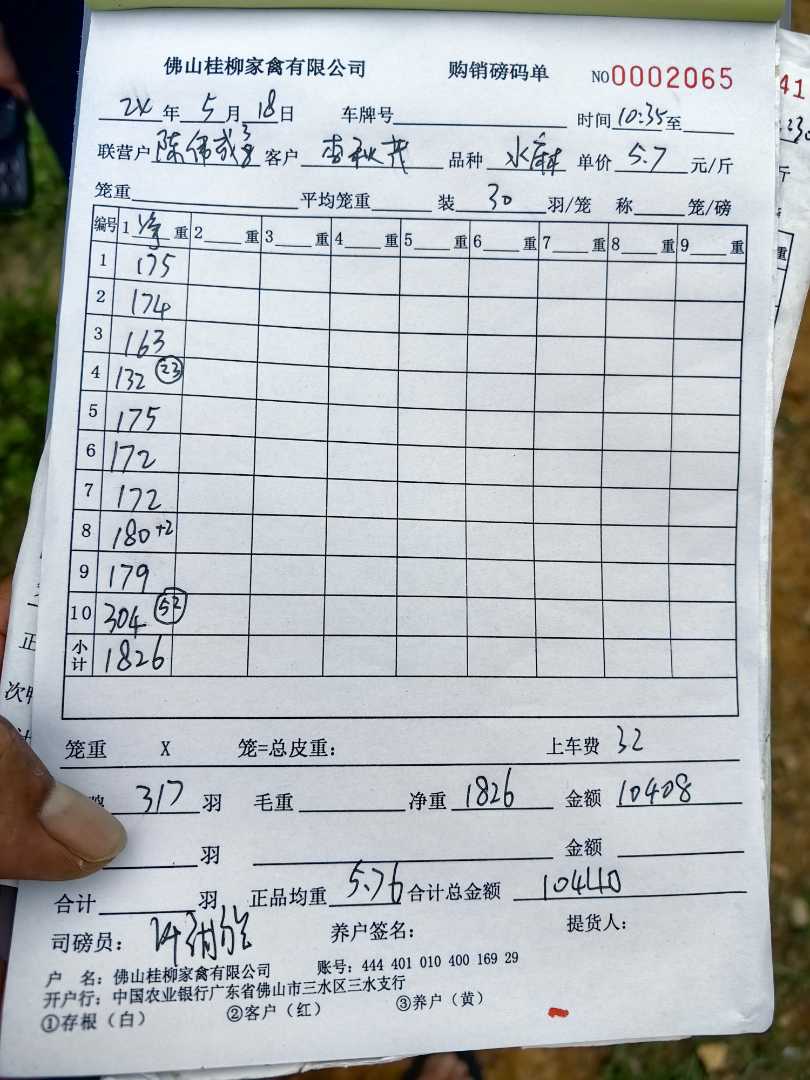 佛山桂柳家禽有限公司 购销磅码单 NO0002065
24年5月18日 车牌号 时间10:35至
联营户陈伟 客户李秋茂 品种水麻 单价5.7元/斤
笼重 平均笼重 装30羽/笼 称 笼/磅
编号 1净重 2 重 3 重 4 重 5 重 6 重 7 重 8 重 9 重
1 175
2 174
3 163
4 132 23
5 175
6 172
7 172
8 180+2
9 179
10 304 52
小计 1826
笼重 X 笼=总皮重: 上车费32
317羽 毛重 净重1826 金额10408
羽 金额
合计 羽 正品均重5.76 合计总金额10440
司磅员: 养户签名: 提货人:
户 名: 佛山桂柳家禽有限公司 账号: 444 401 010 400 169 29
开户行: 中国农业银行广东省佛山市三水区三水支行
①存根(白) ②客户(红) ③养户(黄)